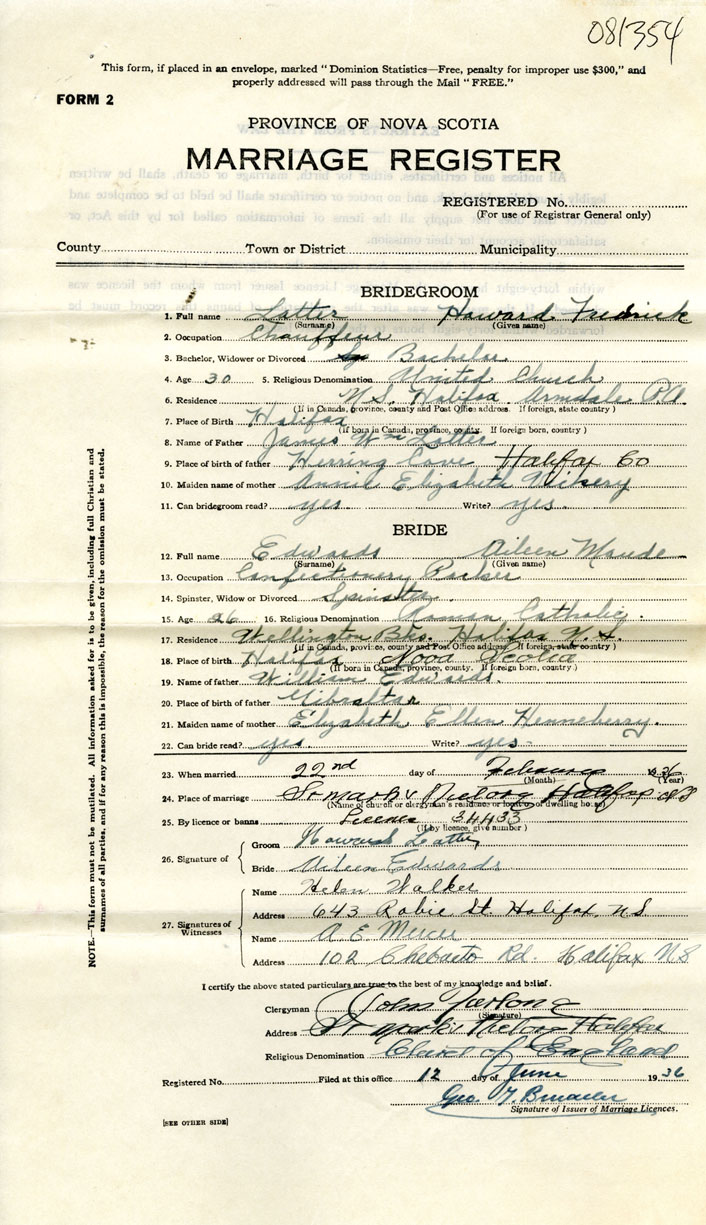 081354
This form, if placed in an envelope, marked "Dominion Statistics—Free, penalty for improper use $300," and
properly addressed will pass through the Mail "FREE."
FORM 2
PROVINCE OF NOVA SCOTIA
MARRIAGE REGISTER
REGISTERED No.
(For use of Registrar General only)
County Town or District Municipality
BRIDEGROOM
1. Full name Latter Howard Fredrick
(Surname) (Given name)
2. Occupation Chauffeur
3. Bachelor, Widower or Divorced Bachelor
4. Age 30 5. Religious Denomination United Church
6. Residence N.S. Halifax Armdale P.O.
(If in Canada, province, county and Post Office address. If foreign, state country)
7. Place of Birth Halifax
(If born in Canada, province, county. If foreign born, country)
8. Name of Father James Wm Latter
9. Place of birth of father Herring Cove Halifax Co
10. Maiden name of mother Annie Elizabeth
11. Can bridegroom read? yes Write? yes.
BRIDE
12. Full name Edwards Aileen Maude
(Surname) (Given name)
13. Occupation Confectionery Packer
14. Spinster, Widow or Divorced Spinster
15. Age 26 16. Religious Denomination Roman Catholic.
17. Residence Wellington Bks. Halifax N.S.
(If in Canada, province, county and Post Office address. If foreign, state country)
18. Place of birth Halifax Nova Scotia
(If born in Canada, province, county. If foreign born, country)
19. Name of father William Edwards.
20. Place of birth of father Gibraltar
21. Maiden name of mother Elizabeth Ellen Henneberry.
22. Can bride read? yes. Write? yes
23. When married 22nd day of February 1936
(Month) (Year)
24. Place of marriage St mark's Halifax NS
(Name of church or clergyman's residence or location of dwelling house)
25. By licence or banns License 34433
(If by licence, give number)
26. Signature of
Groom Howard Latter
Bride Aileen Edwards
27. Signatures of Witnesses
Name Helen Walker
Address 643 Robie St. Halifax, N.S.
Name A. E. Mercer
Address 102 Chebucto Rd. Halifax N.S
I certify the above stated particulars are true to the best of my knowledge and belief.
Clergyman John Furlong
(Signature)
Address St Mark's Halifax
Religious Denomination Church of England
Registered No. Filed at this office 12 day of June 1936
Geo.
Signature of Issuer of Marriage Licences.
[SEE OTHER SIDE]
NOTE.—This form must not be mutilated. All information asked for is to be given, including full Christian and
surnames of all parties, and if for any reason this is impossible, the reason for the omission must be stated.